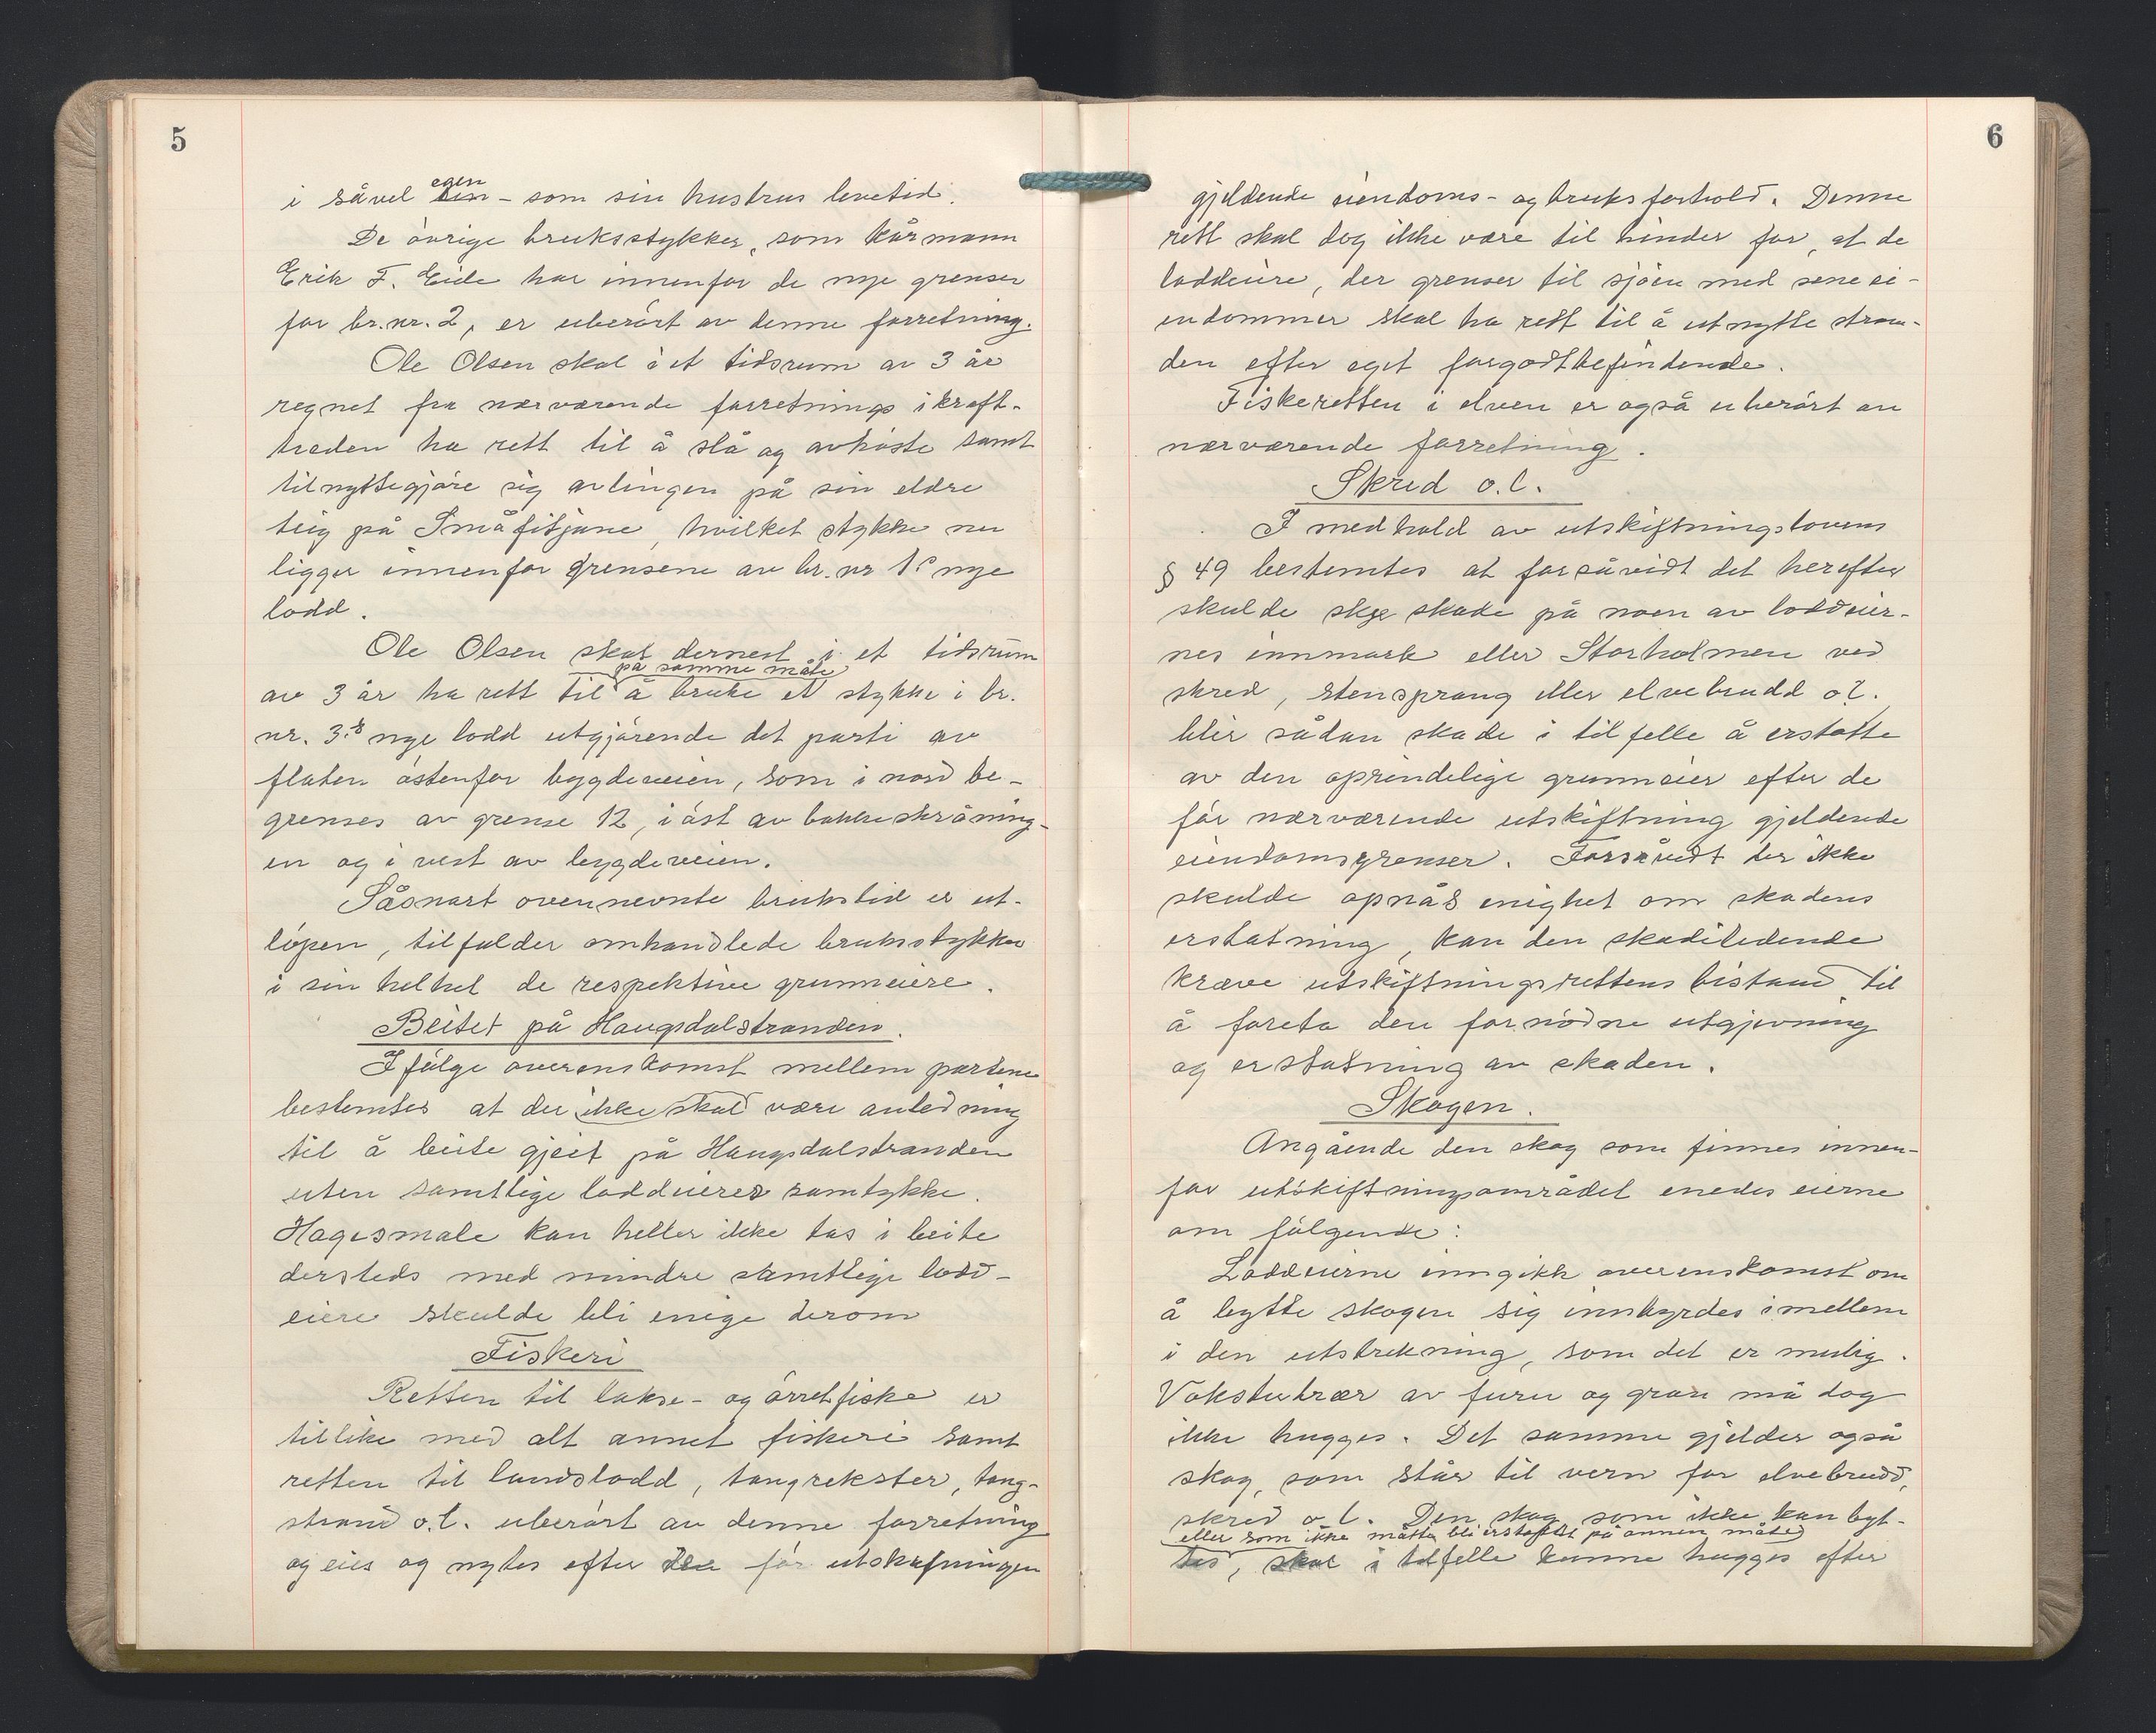 5
i såvel egen - som sin hustrus levetid.
De övrige bruksstykker, som kårmann
Erik F. Eide har innenfor de nye grenser
for br.nr. 2, er uberört av denne forretning.
Ole Olsen skal i et tidsrum av 3 år
regnet fra nærværende forretnings ikraft-
træden ha rett til å slå og avhöste samt
tilnyttegjöre sig avlingen på sin eldre
teig på Småfitjane, hvilket stykke nu
ligger innenfor grensene av br. nr 1s nye
lodd.
Ole Olsen skal dernest i et tidsrum
på samme måte
av 3 år ha rett til å bruke et stykke i br.
nr. 3.s nye lodd utgjörende det parti av
flaten östenfor bygdeveien, som i nord be-
grenses av grense 12, i öst av bakkeskråning-
en og i vest av bygdeveien.
Såsnart ovennevnte brukstid er ut-
löpen, tilfalder omhandlede bruksstykker
i sin helhet de respektive grunneiere.
Beitet på Haugsdalstranden.
Ifölge overenskomst mellem partene
bestemtes at der ikke skal være anledning
til å beite gjeit på Haugsdalstranden
uten samtlige loddeieres samtykke.
Hagesmale kan heller ikke tas i beite
dersteds med mindre samtlige lodd-
eiere skulde bli enige derom
Fiskeri
Retten til lakse- og örretfiske er
tillike med alt annet fiskeri samt
retten til landslodd, tangrekster, tang-
strand o.l. uberört av denne forretning
og eies og nytes efter de för utskiftningen
6
gjeldende eiendoms- og bruksforhold. Denne
rett skal dog ikke være til hinder for, at de
loddeiere, der grenser til sjöen med sine ei-
endommer skal ha rett til å utnytte stran-
den efter eget forgodtbefindende.
Fiskeretten i elven er også uberört av
nærværende forretning.
Skred o.l.
I medhold av utskiftningslovens
§ 49 bestemtes at forsåvidt det herefter
skulde skje skade på noen av loddeier-
nes innmark eller Storholmen ved
skred, stensprang eller elvebrudd o.l.
blir sådan skade i tilfelle å erstatte
av den oprindelige grunneier efter de
för nærværende utskiftning gjeldende
eiendomsgrenser. Forsåvidt der ikke
skulde opnås enighet om skadens
erstatning, kan den skadelidende
kræve utskiftningsrettens bistand til
å foreta den fornödne utgjevning
og erstatning av skaden.
Skogen.
Angående den skog som finnes innen-
for utskiftningsområdet enedes eierne
om fölgende:
Loddeierne inngikk overenskomst om
å bytte skogen sig innbyrdes imellem
i den utstrekning, som det er mulig.
Vokstertrær av furu og gran må dog
ikke hugges. Det samme gjelder også
skog, som står til vern for elvebrudd,
skred o l. Den skog som ikke kan byt-
eller som ikke måtte bli erstattet på annen måte
tes, skal i tilfelle kunne hugges efter